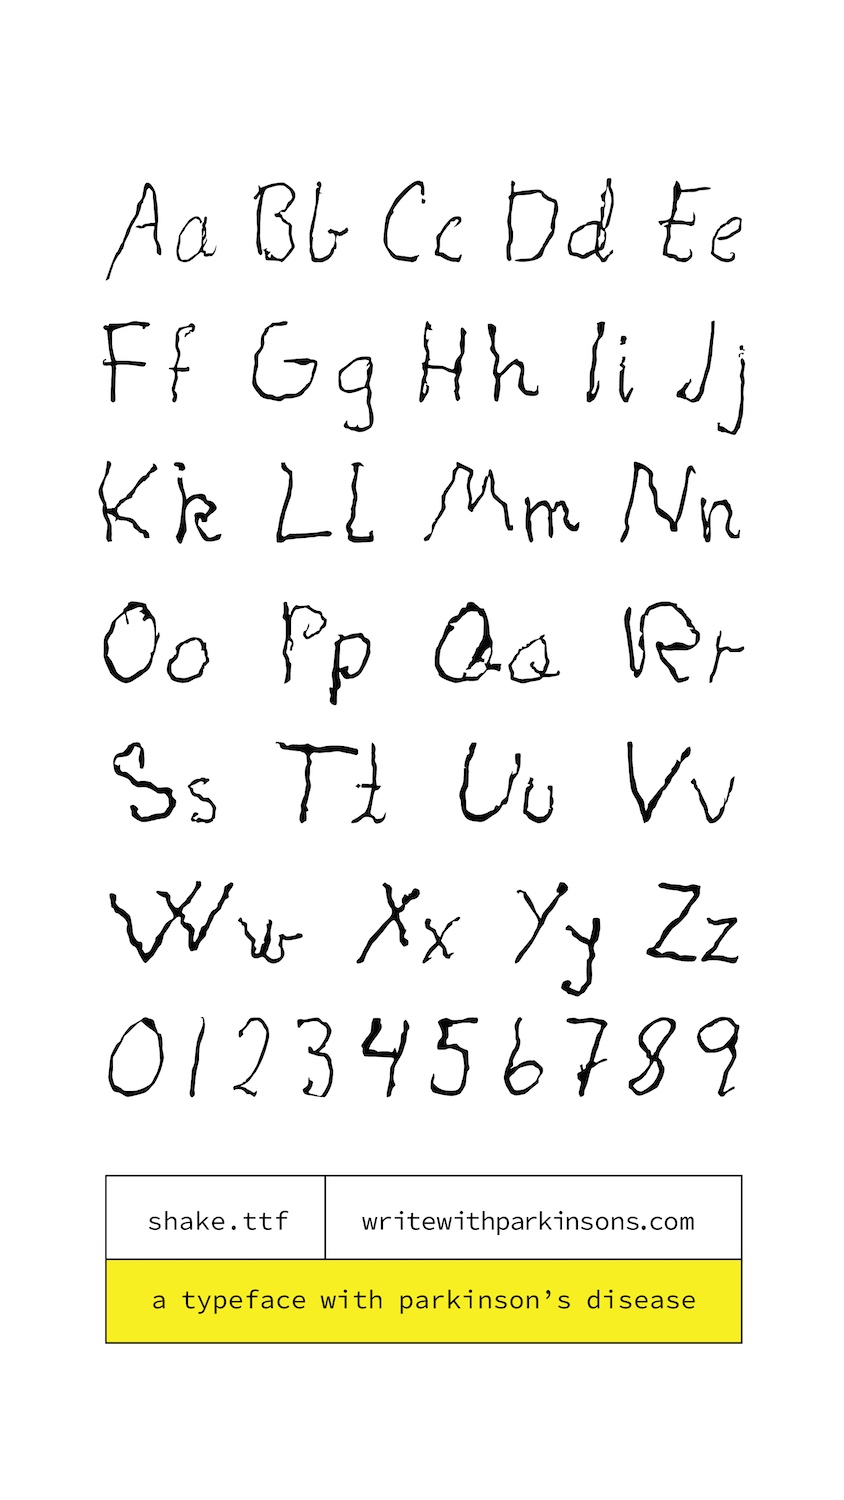 Aa Bb Cc Dd Ee
Ff Gg Hh Ii Jj
Kk Ll Mm Nn
Oo Pp Qq Rr
Ss Tt Uu Vv
Ww Xx Yy Zz
0123456789
shake.ttf writewithparkinsons.com
a typeface with parkinson’s disease